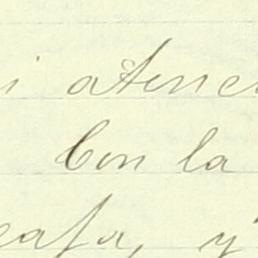 i atenc
Con la
eafa, y